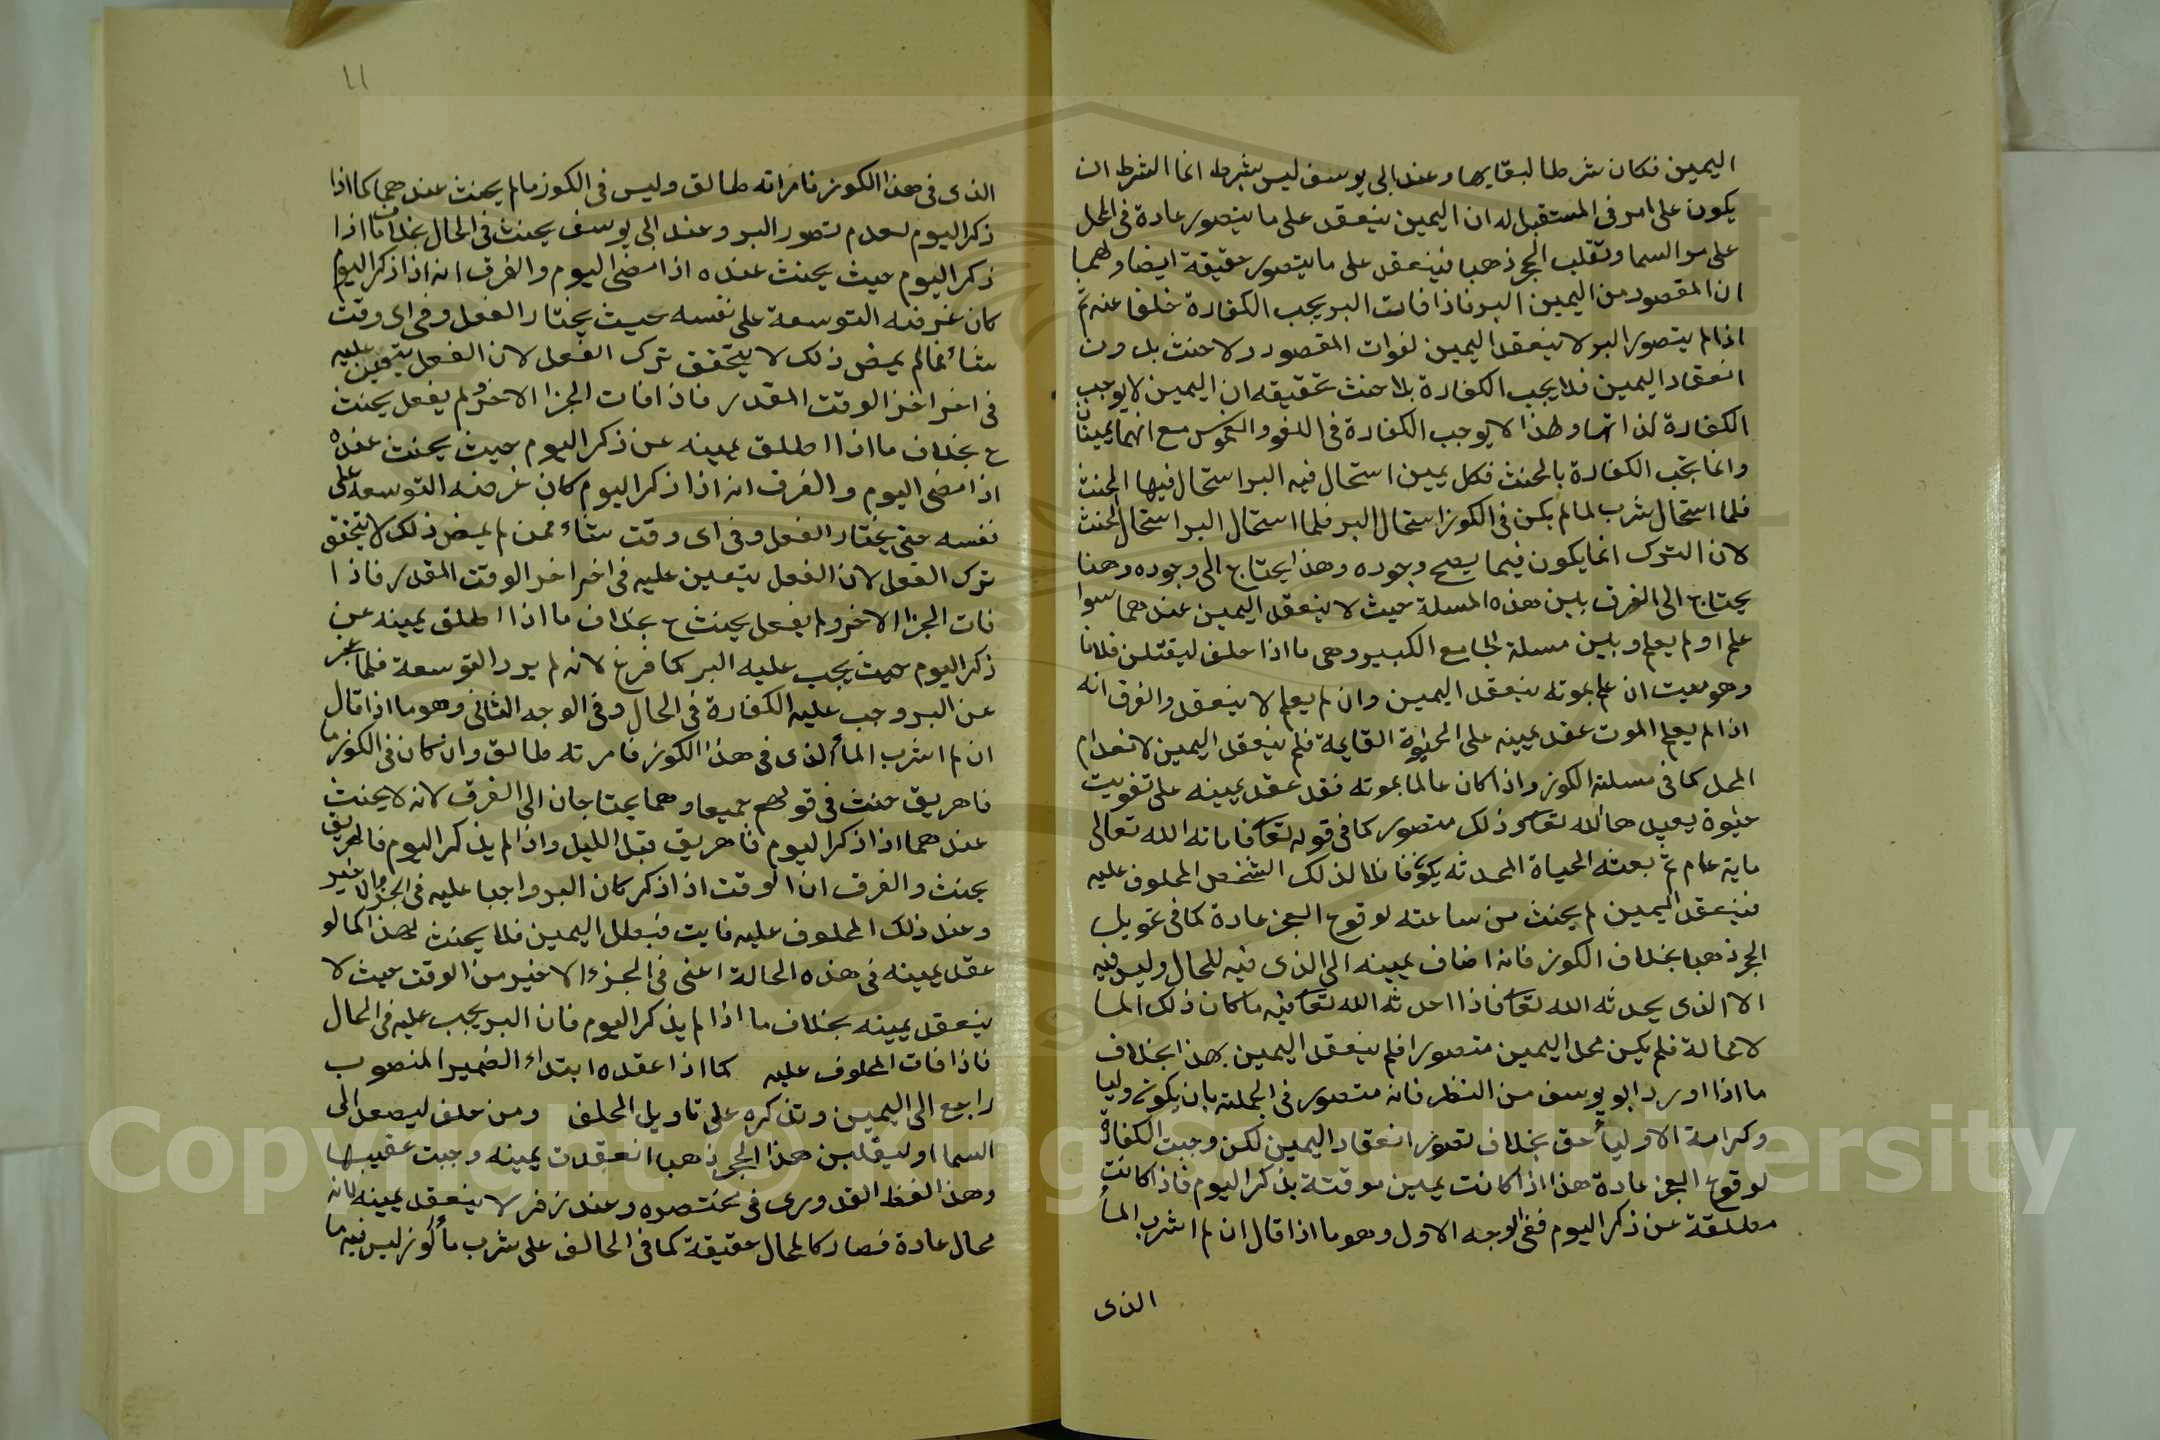 اليمين فكان شرطا لبقايها وعند ابى يوسف ليس بشرط انما الشرط ان
يكون على امر فى المستقبل له ان اليمين ينعقد على ما يتصور عادة فى المحل
على مس السما وتقلب الحجر ذهبا فينعقد على ما يتصور حقيقة ايضا ولهما
ان المقصود من اليمين البر فاذا فات البر يجب الكفارة خلفا عنه ثم
اذا لم يتصور البر لا ينعقد اليمين لفوات المقصود ولا حنث بدون
انعقاد اليمين فلا يجب الكفارة بلا حنث تحقيقه ان اليمين لا يوجب
الكفارة لذاتها ولهذا لا يوجب الكفارة فى اللغو والغموس مع انهما يمينان
وانما يجب الكفارة بالحنث فكل يمين استحال فيه البر استحال فيها الحنث
فلما استحال شرب لما لم يكن فى الكوز استحال البر فلما استحال البر استحال الحنث
لان الترك انما يكون فيما يصح وجوده وهذا يحتاج الى وجوده وهنا
يحتاج الى الفرق بين هذه المسلة حيث لا ينعقد اليمين عندهما سوا
علم او لم يعلم وبين مسلة الجامع الكبير وهى ما اذا حلف ليقتلن فلانا
وهو ميت ان علم بموته ينعقد اليمين وان لم يعلم لا ينعقد والفرق انه
اذا لم يعلم الموت عقد يمينه على الحيوة القايمة فلم ينعقد اليمين لانعدام
المحل كما فى مسلة الكوز واذا كان عالما بموته فقد عقد يمينه على تفويت
حيوة يعيدها الله تعا وذلك متصور كما فى قوله تعا فاماته الله تعالى
ماية عام ثم بعثه الحياة المحدثه يكون فانلا لذلك الشخص المحلوف عليه
فينعقد اليمين ثم يحنث من ساعته لوقوع العجز عادة كما فى تحويل
الحجر ذهبا بخلاف الكوز فانه اضاف يمينه الى الذى فيه للحال وليس فيه
الا الذى يحدثه الله تعا فاذا احدثه الله تعا فيه ما كان ذلك الما
لا محالة فلم يكن محل اليمين متصورا فلم ينعقد اليمين بهذا بخلاف
ما اذا اورد ابو يوسف من النظر فانه متصور فى الجملة بان يكون وليا
وكرامة الاوليا حق بخلاف تصور انعقاد اليمين لكن وجبت الكفارة
لوقوع العجز عادة هذا اذا كانت يمين موقتة بذكر اليوم فاذا كانت
مطلقة عن ذكر اليوم ففى الوجه الاول وهو ما اذا قال ان لم اشرب الماأ
الذى
١١
الذى فى هذا الكوز فامراته طالق وليس فى الكوز ما لم يحنث عندهما كما اذا
ذكر اليوم لعدم تصور البر وعند ابى يوسف يحنث فى الحال بخلاف ما اذا
ذكر اليوم حيث يحنث عنده اذا مضى اليوم والفرق انه اذا ذكر اليوم
كان غرضه التوسعة على نفسه بحيث يختار الفعل وفى اى وقت
شاأ فما لم يمض ذلك لا يتحقق ترك الفعل لان الفعل يتعين عليه
فى اخر اخر الوقت المقدر فاذا فات الجزا الاخر ولم يفعل يحنث
ح بخلاف ما اذا اطلق يمينه عن ذكر اليوم حيث يحنث عنده
اذا مضى اليوم والفرق انه اذا ذكر اليوم كان غرضه التوسعة على
نفسه حتى يختار الفعل وفى اى وقت شاء فمن لم يمض ذلك لا يتحقق
ترك الفعل لان الفعل يتعين عليه فى اخر اخر الوقت المقدر فاذا
فات الجزا الاخر ولم يفعل يحنث ح بخلاف ما اذا اطلق يمينه عن
ذكر اليوم حيث يجب عليه البر كما فرغ لانه لم يرد التوسعة فلما عجز
عن البر وجب عليه الكفارة فى الحال وفى الوجه الثانى وهو ما اذا قال
ان لم اشرب الماأ الذى فى هذا الكوز فامرته طالق وان كان فى الكوز ما
فاهريق حنث فى قولهم جميعا وهما يحتاجان الى الفرق لانه لا يحنث
عندهما اذا ذكر اليوم فاهريق قبل الليل واذا لم يذكر اليوم فاهريق
يحنث والفرق ان الوقت اذا ذكر كان البر واجبا عليه فى الجزا الاخير
وعند ذلك المحلوف عليه فايت فبطل اليمين فلا يحنث لهذا كما لو
عقد يمينه فى هذه الحالة اعنى فى الجزء الاخير من الوقت حيث لا
ينعقد يمينه بخلاف ما اذا لم يذكر اليوم فان البر يجب عليه فى الحال
فاذا فات المحلوف عليه كما اذا عقده ابتداء الضمير المنصوب
راجع الى اليمين وتذكره على تاويل الحلف ومن حلف ليصعد الى
السما او ليقلبن هذا الحجر ذهبا انعقدت يمينه وجبت عقيبها
وهذا لفظ القدورى فى مختصره وعند زفر لا ينعقد يمينه لانه
محال عادة فصار كالمحال حقيقة كما فى الحالف على شرب ماأ كوز ليس فيه ما
Copyright © King Saud University
1957